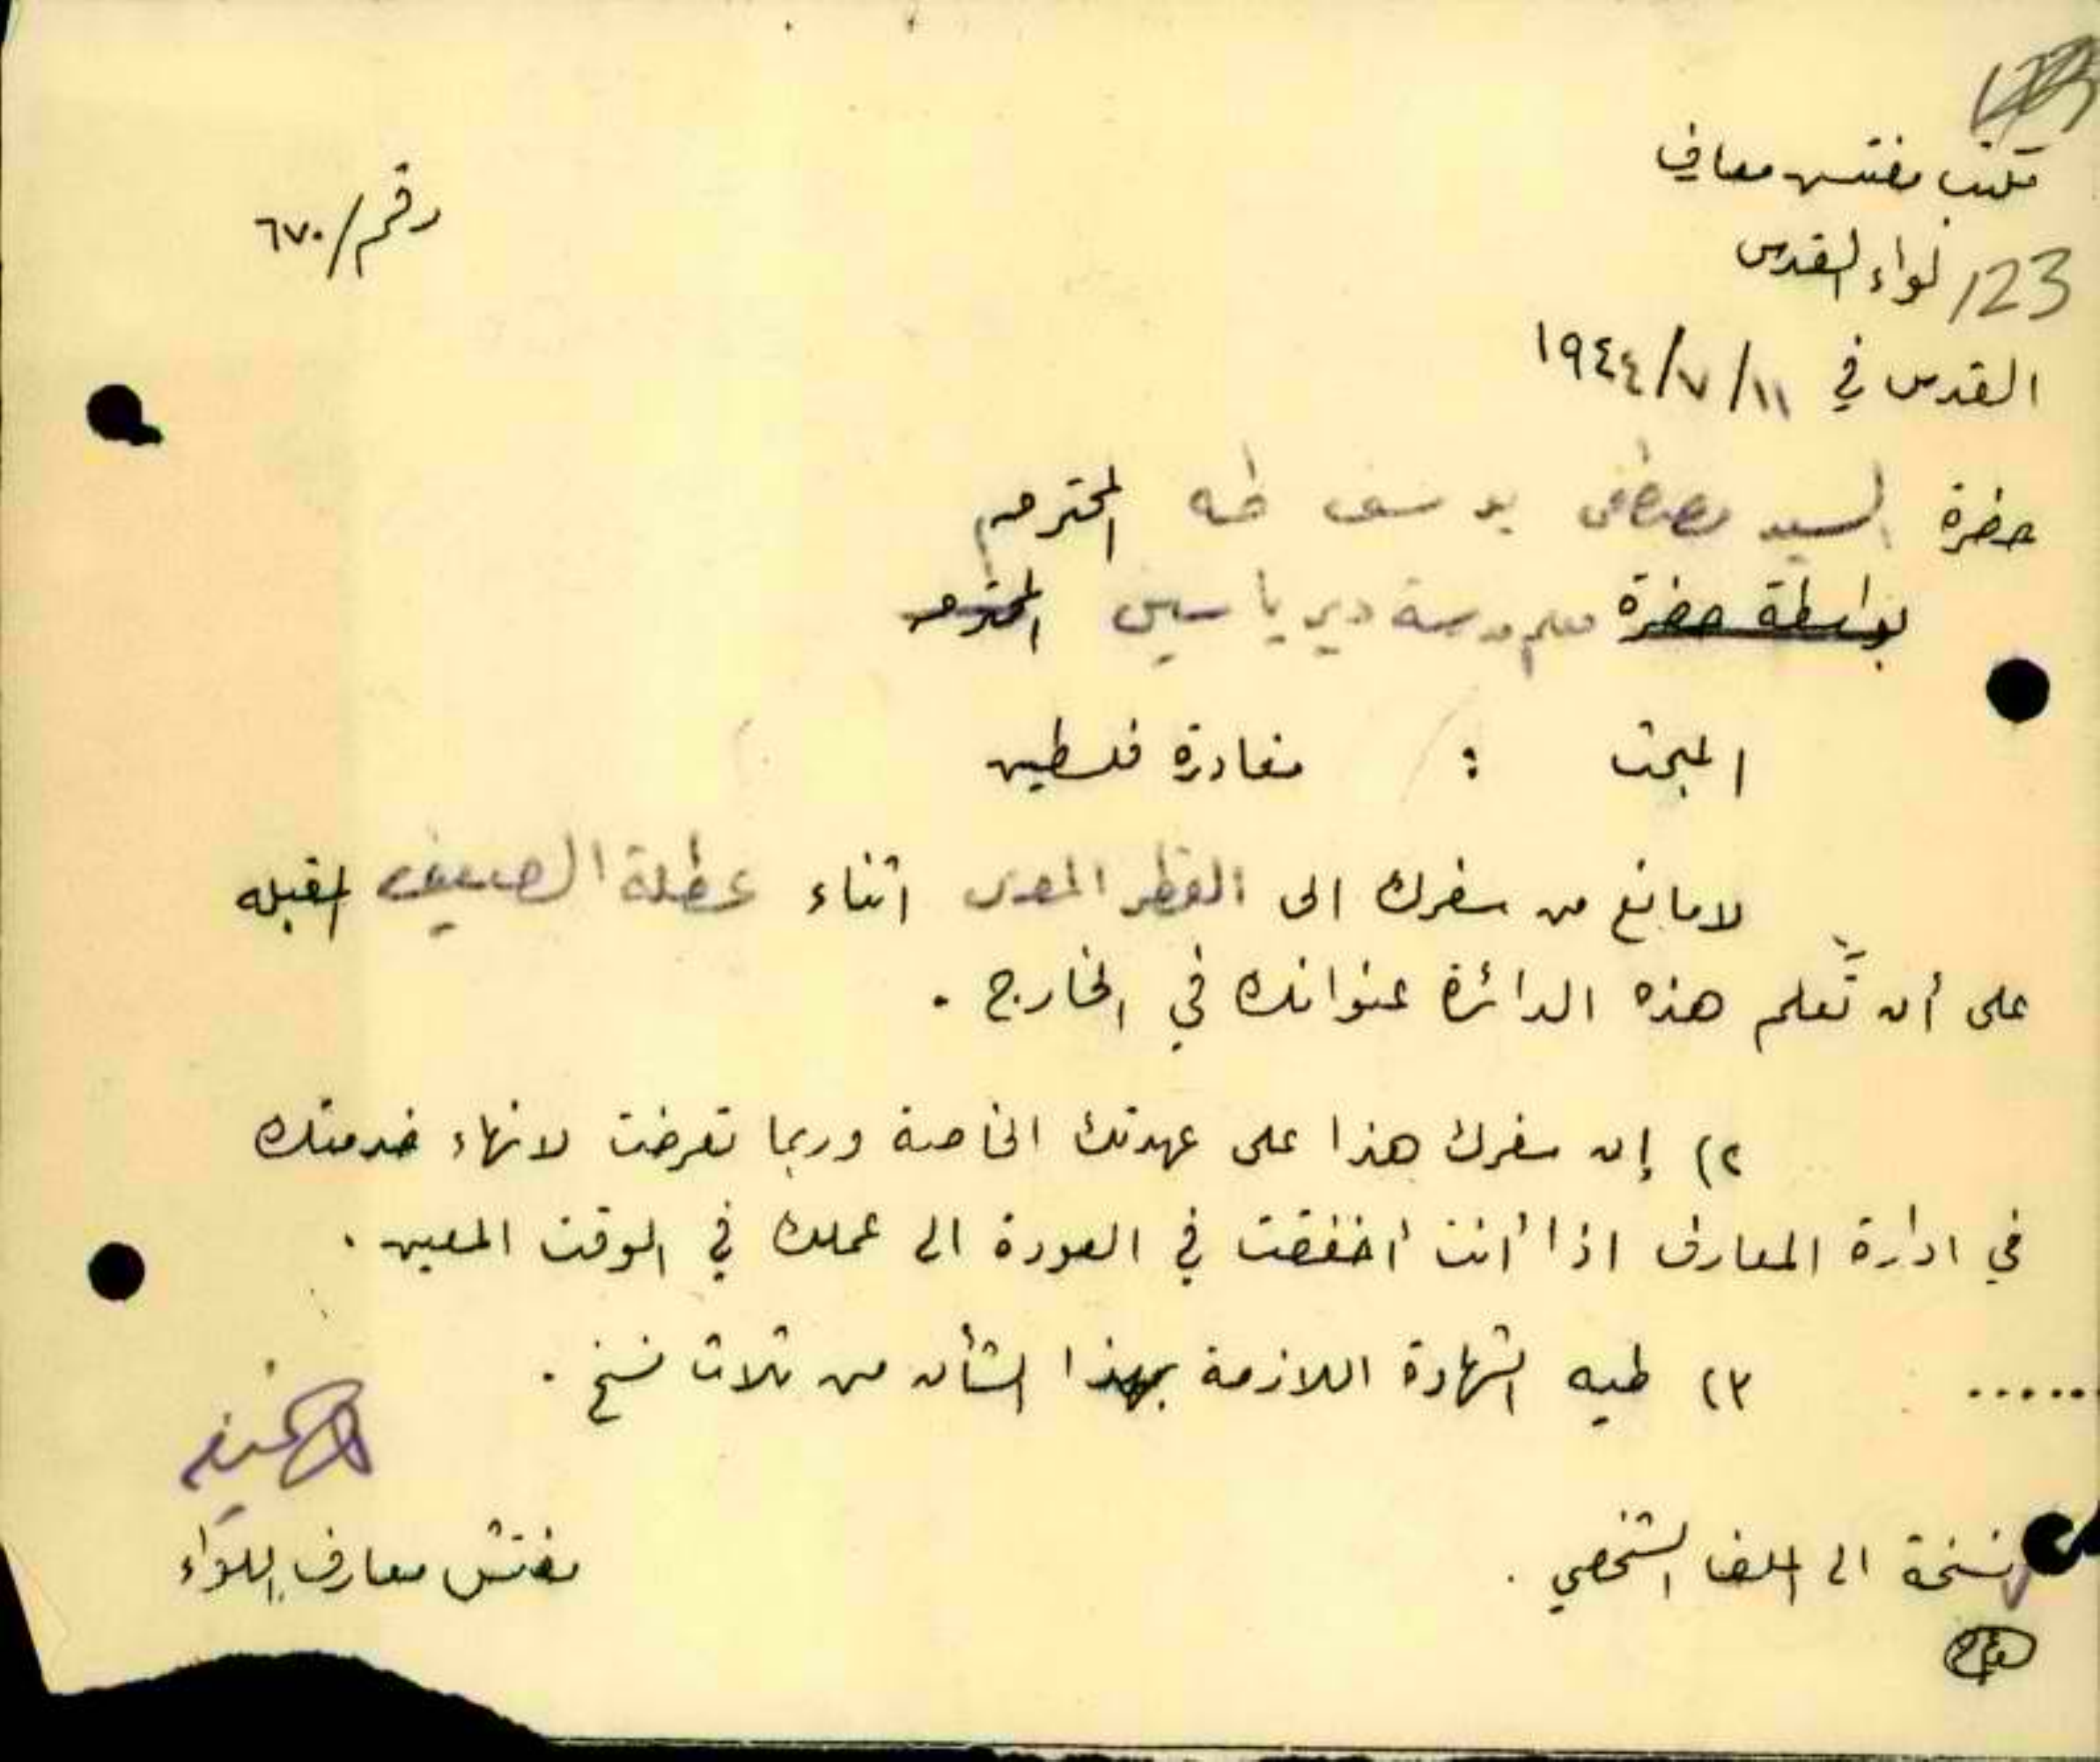 مكتب مفتش معارف
رقم/٦٧٠
لواء القدس
123
القدس في ١١/٧/١٩٤٤
حضرة السيد مصطفى يوسف طه المحترم
بواسطة حضرة معلم مدرسة دير ياسين المحترم
المبحث : مغادرة فلسطين
لا مانع من سفرك الى القطر المصري اثناء عطلة الصيف المقبله
على أن تُعلم هذه الدائرة عنوانك في الخارج .
٢) إن سفرك هذا على عهدتك الخاصة وربما تعرضت لانهاء خدمتك
في ادارة المعارف اذا أنت أخفقت في العودة الى عملك في الوقت المعين .
...... ٣) طيه الشهادة اللازمة بهذا الشأن من ثلاث نسخ .
مفتش معارف اللواء
نسخة الى الملف الشخصي .